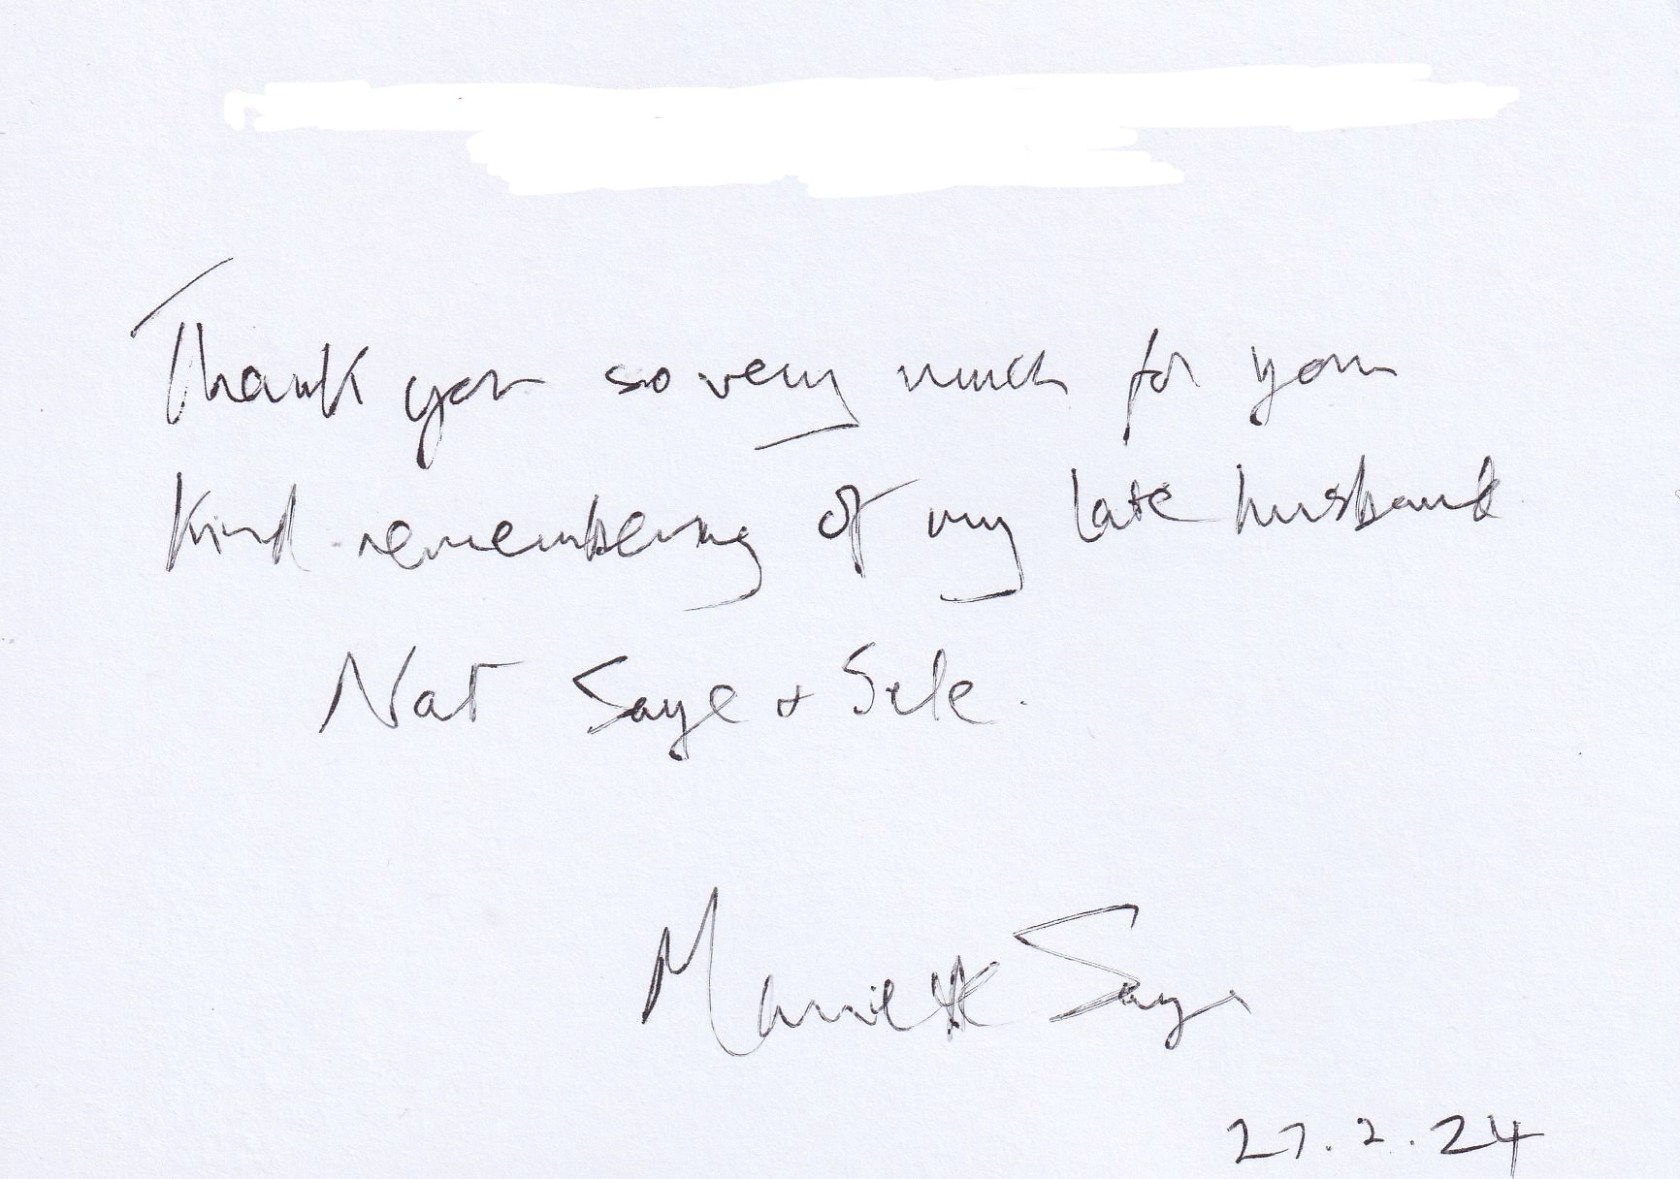 Thank you so very much for your
kind remembering of my late husband
Nat Saye + Sele.
Mariette Saye
27.2.24